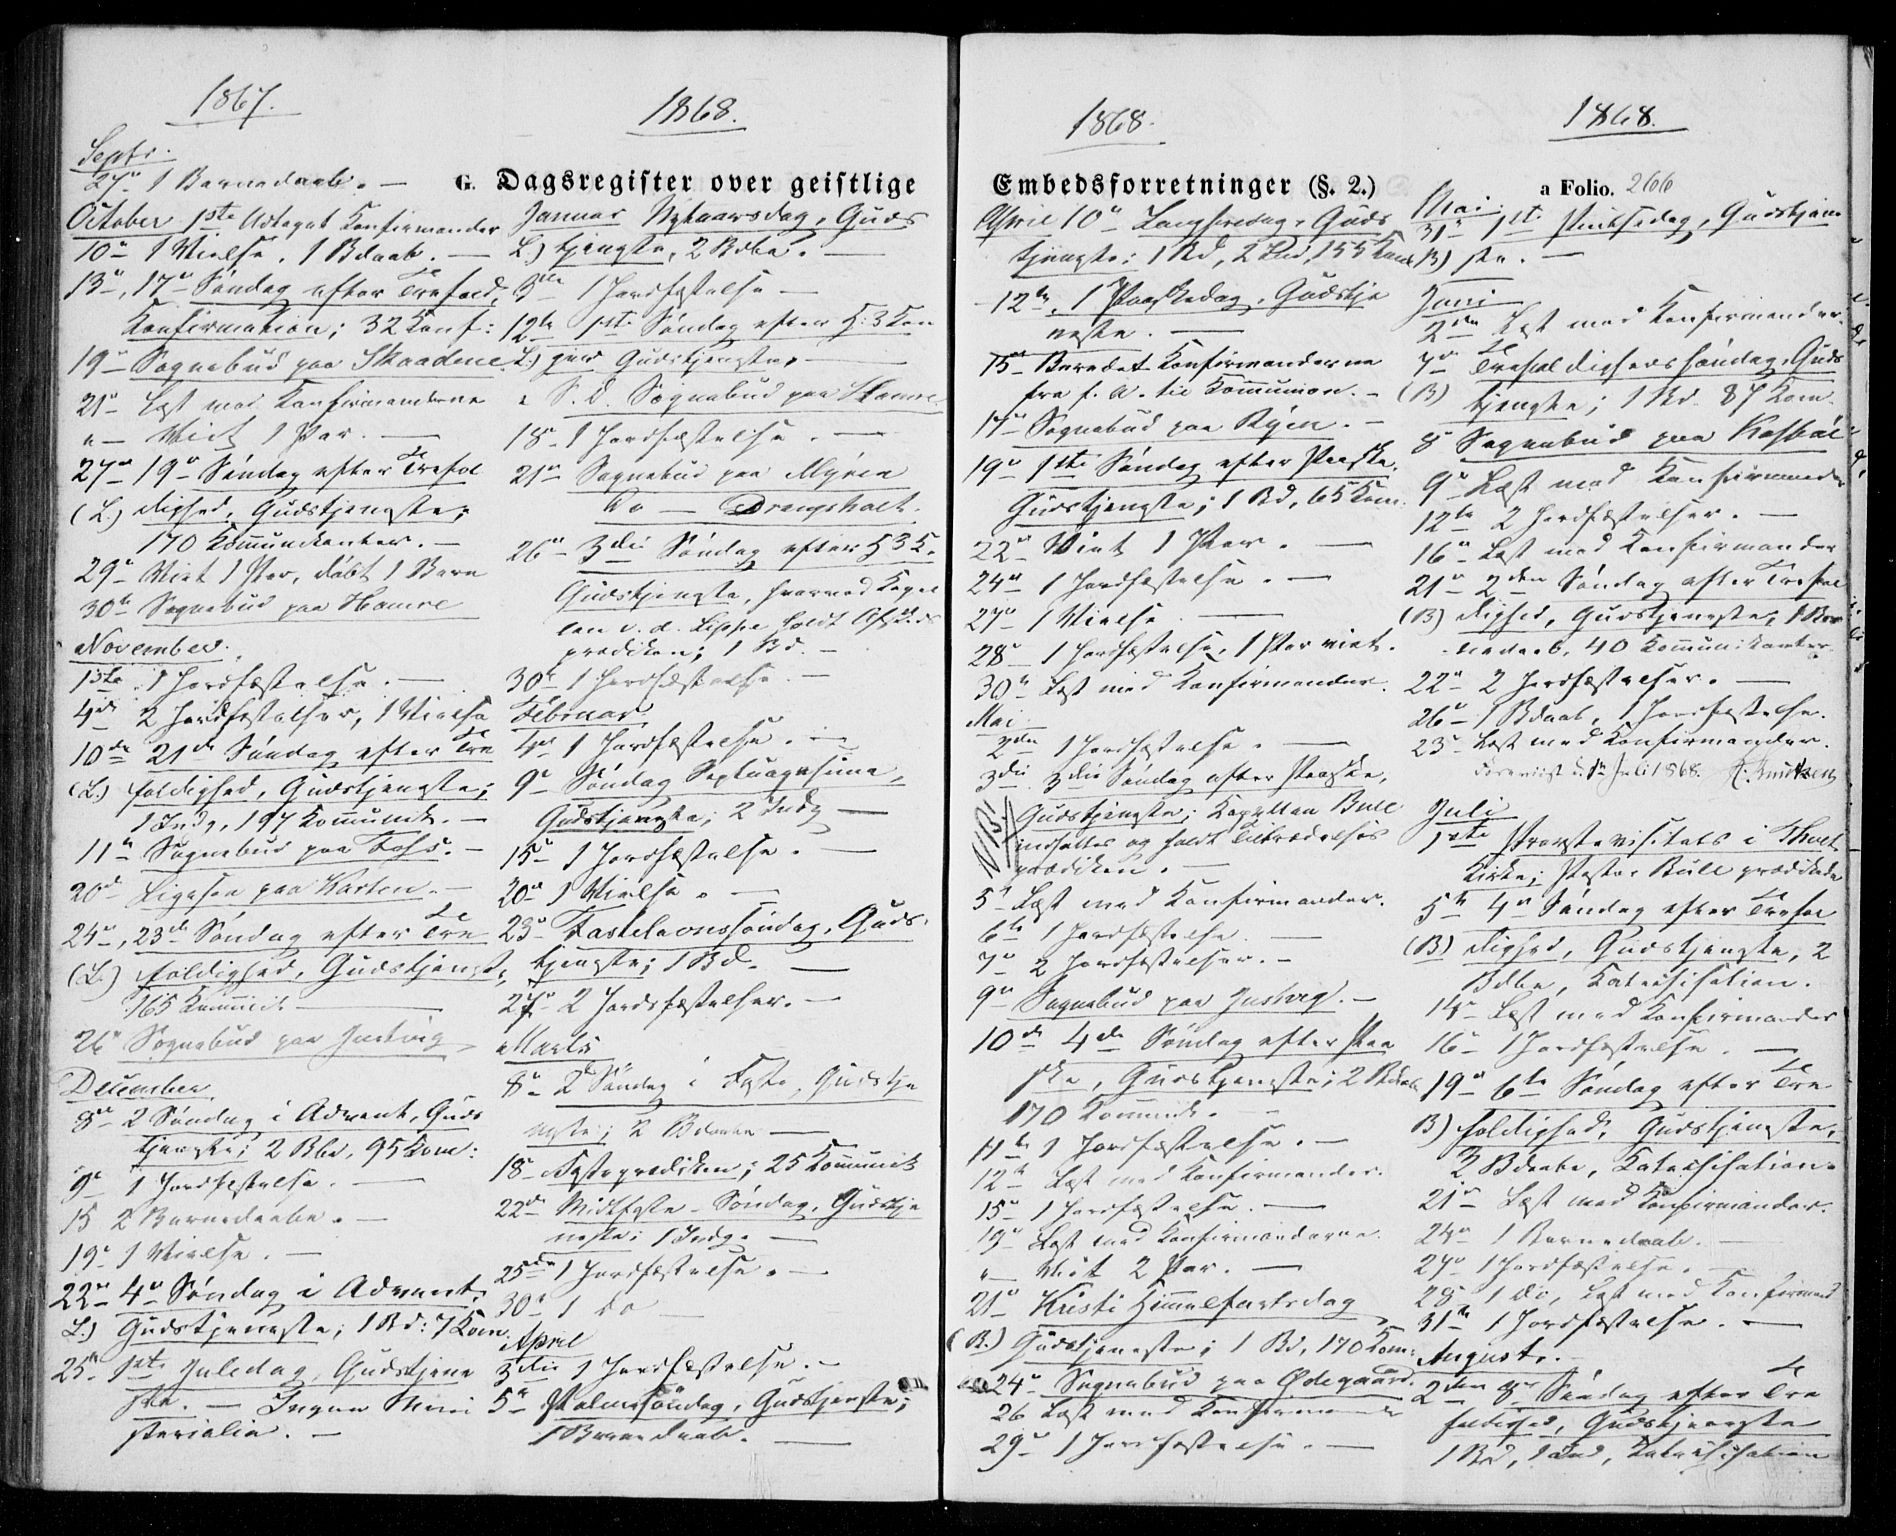 1867.
Septr.
27de 1 Barnedaab. —
October 1ste Udtaget Konfirmander
10de 1 Vielse, 1 Bdaab. —
13de, 17de Søndag efter Trefold.
Konfirmation; 32 Konf:
19de Sognebud paa Skaadene
21de Læst med Konfirmanderne
" — Viet 1 Par. —
27de 19de Søndag efter Trefol
(L.) dighed, Gudstjeneste;
170 Kommunikanter. —
29de Viet 1 Par, døbt 1 Barn
30te Sognebud paa Hamre
November.
1ste 1 Jordfæstelse. —
4de 2 Jordfæstelser, 1 Vielse
10de 21de Søndag efter Tre
(L.) foldighed, Gudstjeneste;
1 Indg, 197 Kommunik. —
11te Sognebud paa Foss. —
20de Ligesaa paa Karten. —
24de, 23de Søndag efter Tre
(L.) foldighed, Gudstjeneste,
165 Kommunik. —
26de Sognebud paa Justvig
December.
8de 2 Søndag i Advent, Guds
tjeneste; 2 Bbd, 95 Kom:
9de 1 Jordfæstelse. —
15 2 Barnedaabe. —
19de 1 Vielse. —
22de 4de Søndag i Advent.
L.) Gudstjeneste; 1 Bd: 7 Kom.
25de 1ste Juledag, Gudstjene
ste. — Ingen Mini
sterialia. —
1868.
G. Dagsregister over geistlige
Januar Nytaarsdag, Guds
L.) tjeneste, 2 Bdbe. —
3die 1 Jordfæstelse —
12te 1ste Søndag efter H: 3 Kon
L.) gers Gudstjeneste, —
" S. D. Sognebud paa Hamre
18de 1 Jordfæstelse. —
21de Sognebud paa Myren
do — Drangsholt.
26de 3die Søndag efter H 3 K.
Gudstjeneste, hvorved Kapel
lan v. d. Lippe holdt Afskeds
prædiken; 1 Bd. —
30te 1 Jordfæstelse. —
Februar.
4de 1 Jordfæstelse. —
9de Søndag Septuagesima,
Gudstjeneste; 2 Indg —
15de 1 Jordfæstelse. —
20de 1 Vielse. —
23de Fastelavnssøndag, Guds
tjeneste; 1 Bd. —
27de 2 Jordfæstelser. —
Marts
8de 2de Søndag i Faste, Gudstje
neste; 2 Bdaabe —
18de Fasteprædiken; 25 Kommunik
22de Midtfaste-Søndag, Gudstje
neste; 1 Indg. —
25de 1 Jordfæstelse. —
30te 1 do —
April
3die 1 Jordfæstelse. —
5te Palmesøndag, Gudstjeneste;
1 Barnedaab. —
1868.
Embedsforretninger (§. 2.)
April 10de Langfredag, Guds
tjeneste; 1 Bd, 2 Ind, 155 Kom
12te, 1 Paaskedag, Gudstje
neste. —
15de Beredet Konfirmanderne
fra f. A. til Kommunion. —
17de Sognebud paa Ryen. —
19de 1ste Søndag efter Paaske.
Gudstjeneste; 1 Bd, 65 Kom.
22de Viet 1 Par. —
24de 1 Jordfæstelse. —
27de 1 Vielse. —
28de 1 Jordfæstelse, 1 Par viet.
30te Læst med Konfirmander.
Mai
2den 1 Jordfæstelse. —
3die 3die Søndag efter Paaske,
NB. Gudstjeneste; Kapellan Bull
indsattes og holdt Tiltrædelses
prædiken. —
5te Læst med Konfirmander.
6te 1 Jordfæstelse. —
7de 2 Jordfæstelser. —
9de Sognebud paa Justvig. —
10de 4de Søndag efter Paa
ske, Gudstjeneste; 2 Bdaab
170 Kommunik. —
11te 1 Jordfæstelse. —
12te Læst med Konfirmander.
15de 1 Jordfæstelse. —
19de Læst med Konfirmanderne.
" — Viet 2 Par. —
21de Kristi Himmelfartsdag
(B.) Gudstjeneste; 1 Bd, 170 Kom:
24de Sognebud paa Ødegaard.
26 Læst med Konfirmander
29de 1 Jordfæstelse. —
1868.
a Folio. 266
Mai.
31te 1ste Pintsedag, Gudstjene
(B) ste. —
Juni
2den Læst med Konfirmander.
7de Trefoldighedssøndag, Guds
(B) tjeneste; 1 Bd. 87 Kom.
8 Sognebud paa
9de Læst med Konfirmander
12te 2 Jordfæstelser. —
16de Læst med Konfirmander
21de 2den Søndag efter Trefol
(B) dighed, Gudstjeneste, 1 Bar
nedaab, 40 Kommunikanter
22de 2 Jordfæstelser. —
26de 1 Bdaab, 1 Jordfæstelse.
23de Læst med Konfirmander.
Foreviist d. 1ste Juli 1868.
Juli
1ste Provstevisitats i Thveit
Kirke; Pastor Bull prædikede
5te 4de Søndag efter Trefol
(B) dighed, Gudstjeneste, 2
Bdbe, Katechisation.
14de Læst med Konfirmander
16de 1 Jordfæstelse. —
19de 6te Søndag efter Tre
B) foldighed, Gudstjeneste,
2 Bdaabe, Katechisation.
21de Læst med Konfirmander.
24de 1 Barnedaab. —
27de 1 Jordfæstelse. —
28 1 do, Læst med Konfirmand
31te 1 Jordfæstelse. —
August. —
2den 8de Søndag efter Tre
foldighed, Gudstjeneste
1 Bd, 1 Ind, Katechisation